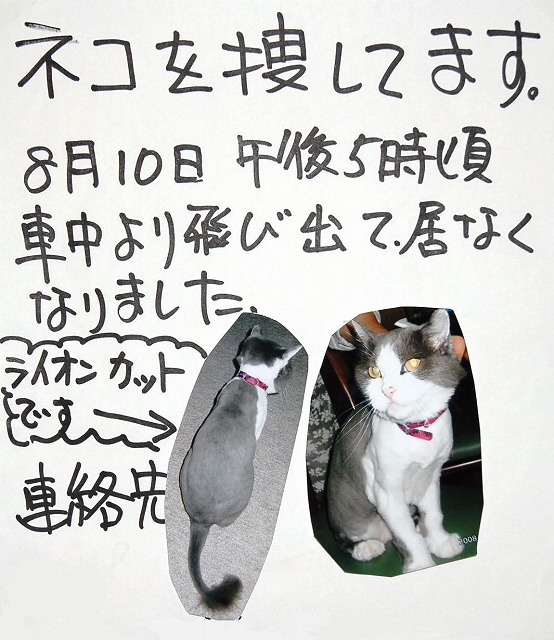 ネコを捜してます。
8月10日 午後5時頃
車中より飛び出て.居なく
なりました.
ライオンカット
です→
連絡先
2008